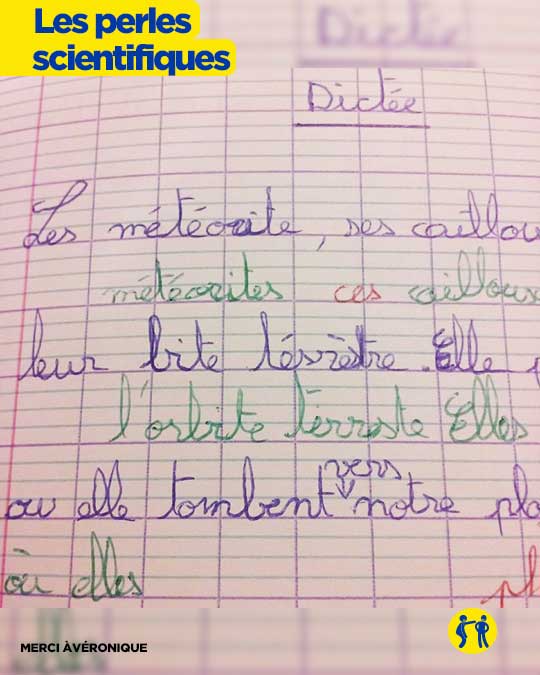 Les perles
scientifiques
Dictée
Les météorite, ses caillou
météorites ces cailloux
leur bite térrèstre. Elle
l'orbite térrste Elles
vers
ou elle tombent notre pla
où elles pl
MERCI À VÉRONIQUE